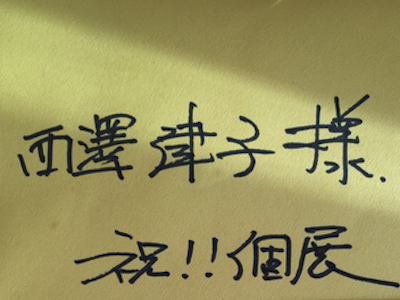 西澤 津子 様.
祝!!個展